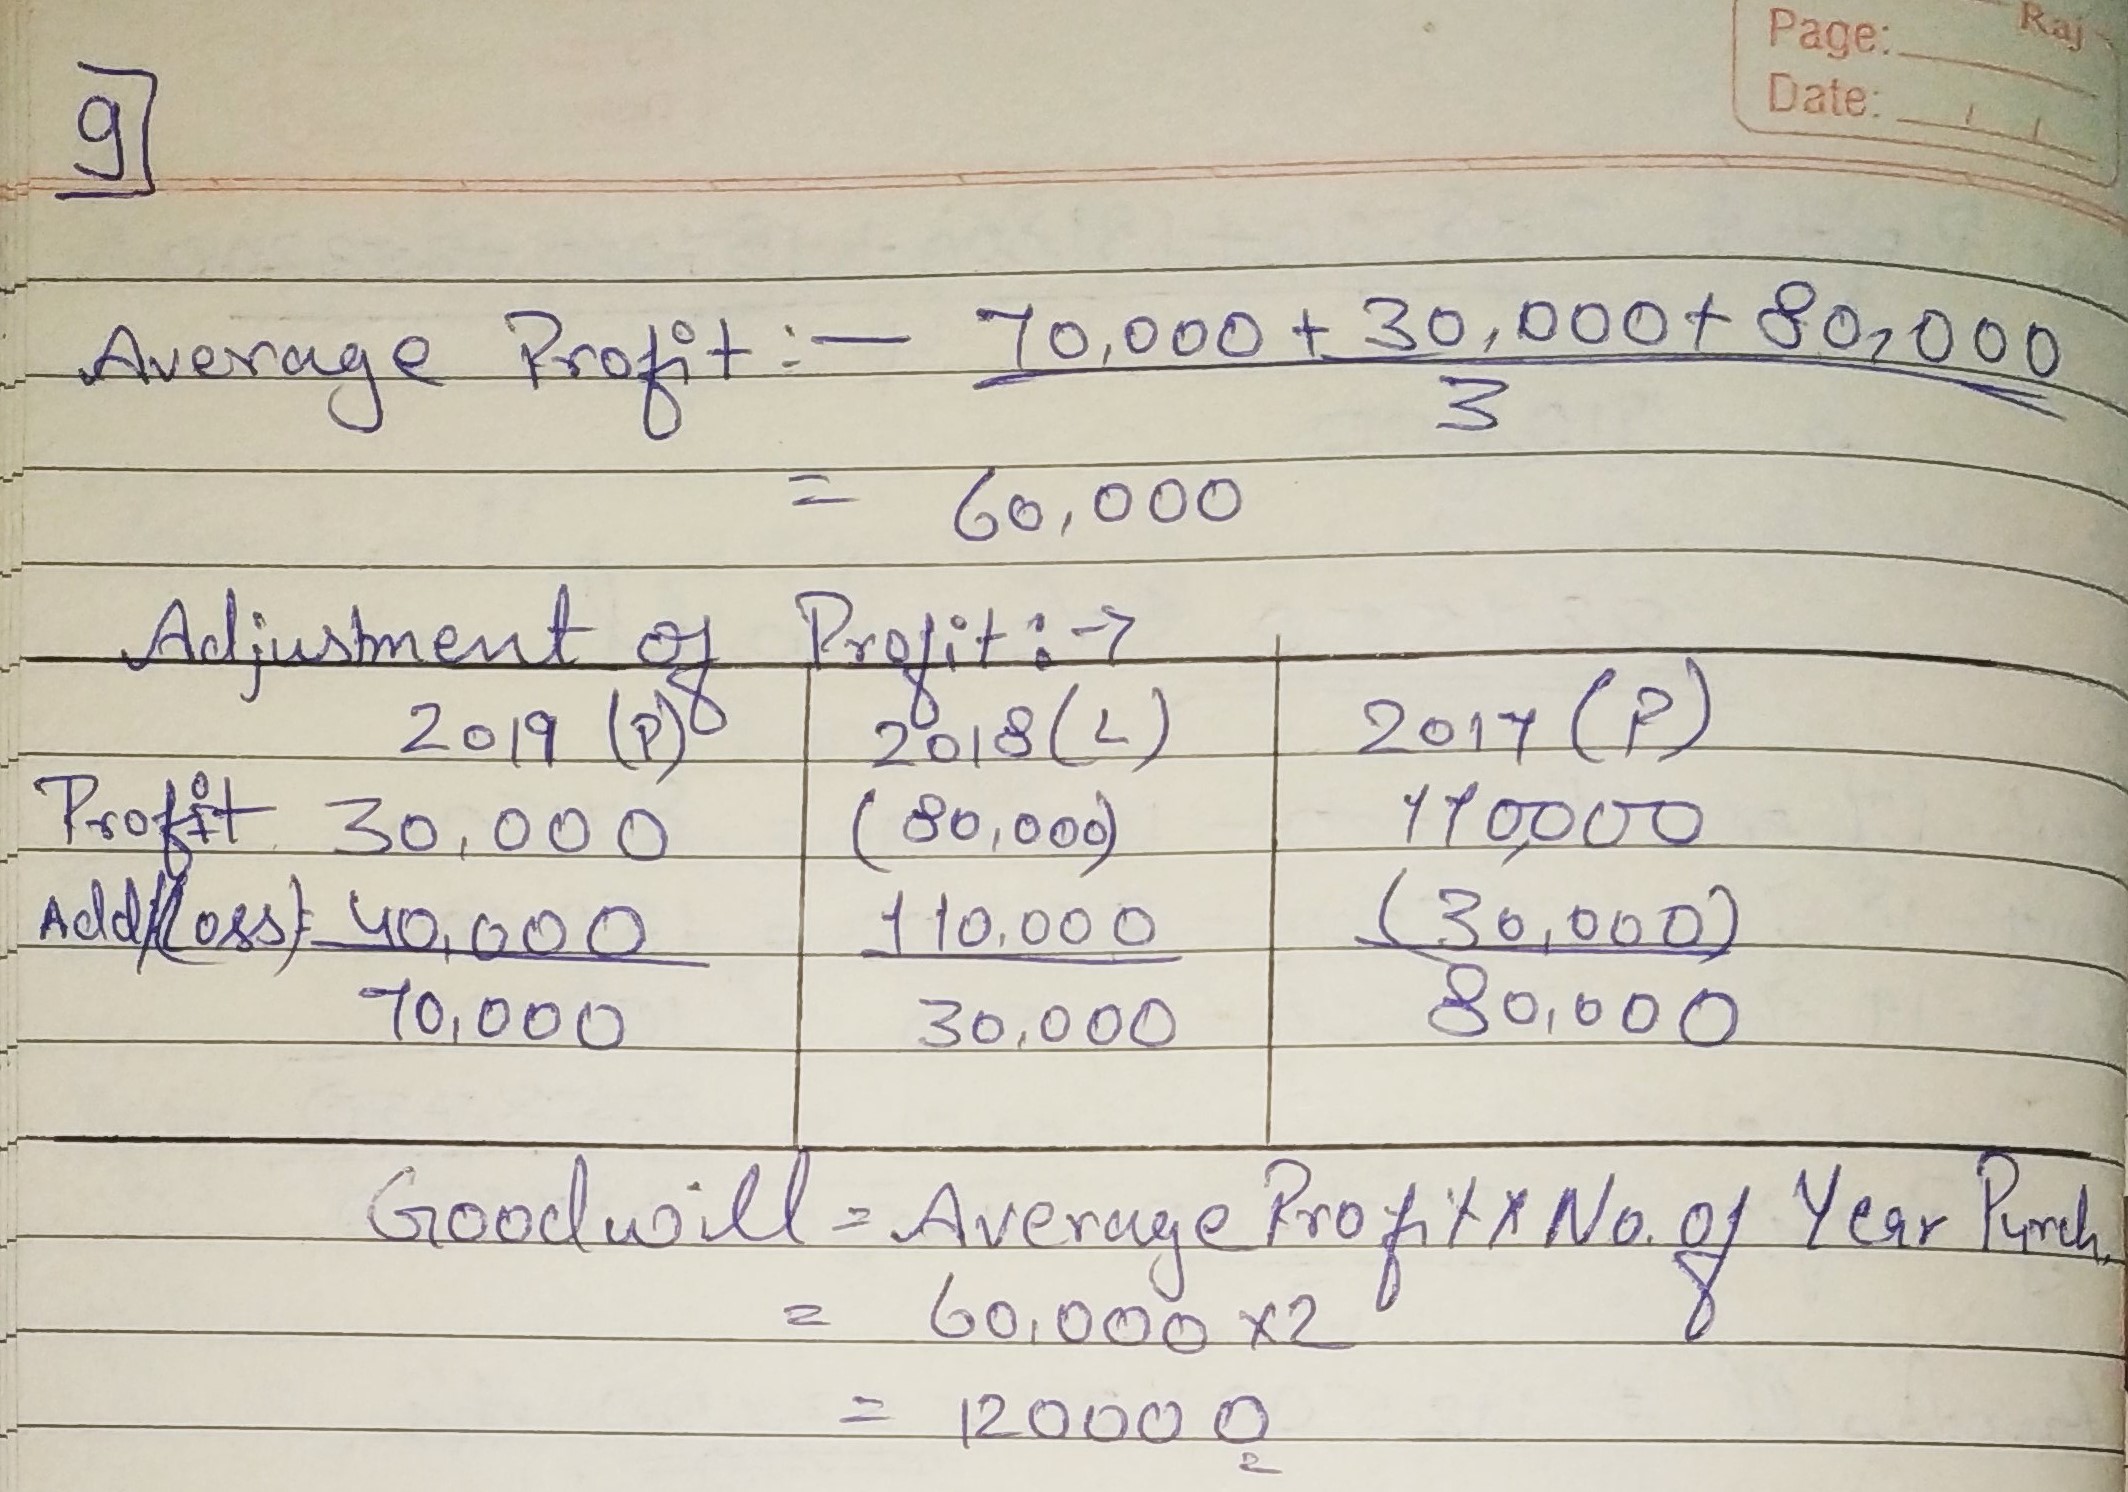 Raj
Page:
Date:
9
Average Profit :- 70,000 + 30,000 + 80,000
3
= 60,000
Adjustment of Profit :→
2019 (P) 2018 (L) 2017 (P)
Profit 30,000 (80,000) 110,000
Add/(Loss) 40,000 110,000 (30,000)
70,000 30,000 80,000
Goodwill = Average Profit x No. of Year Purch.
= 60,000 x 2
= 120000